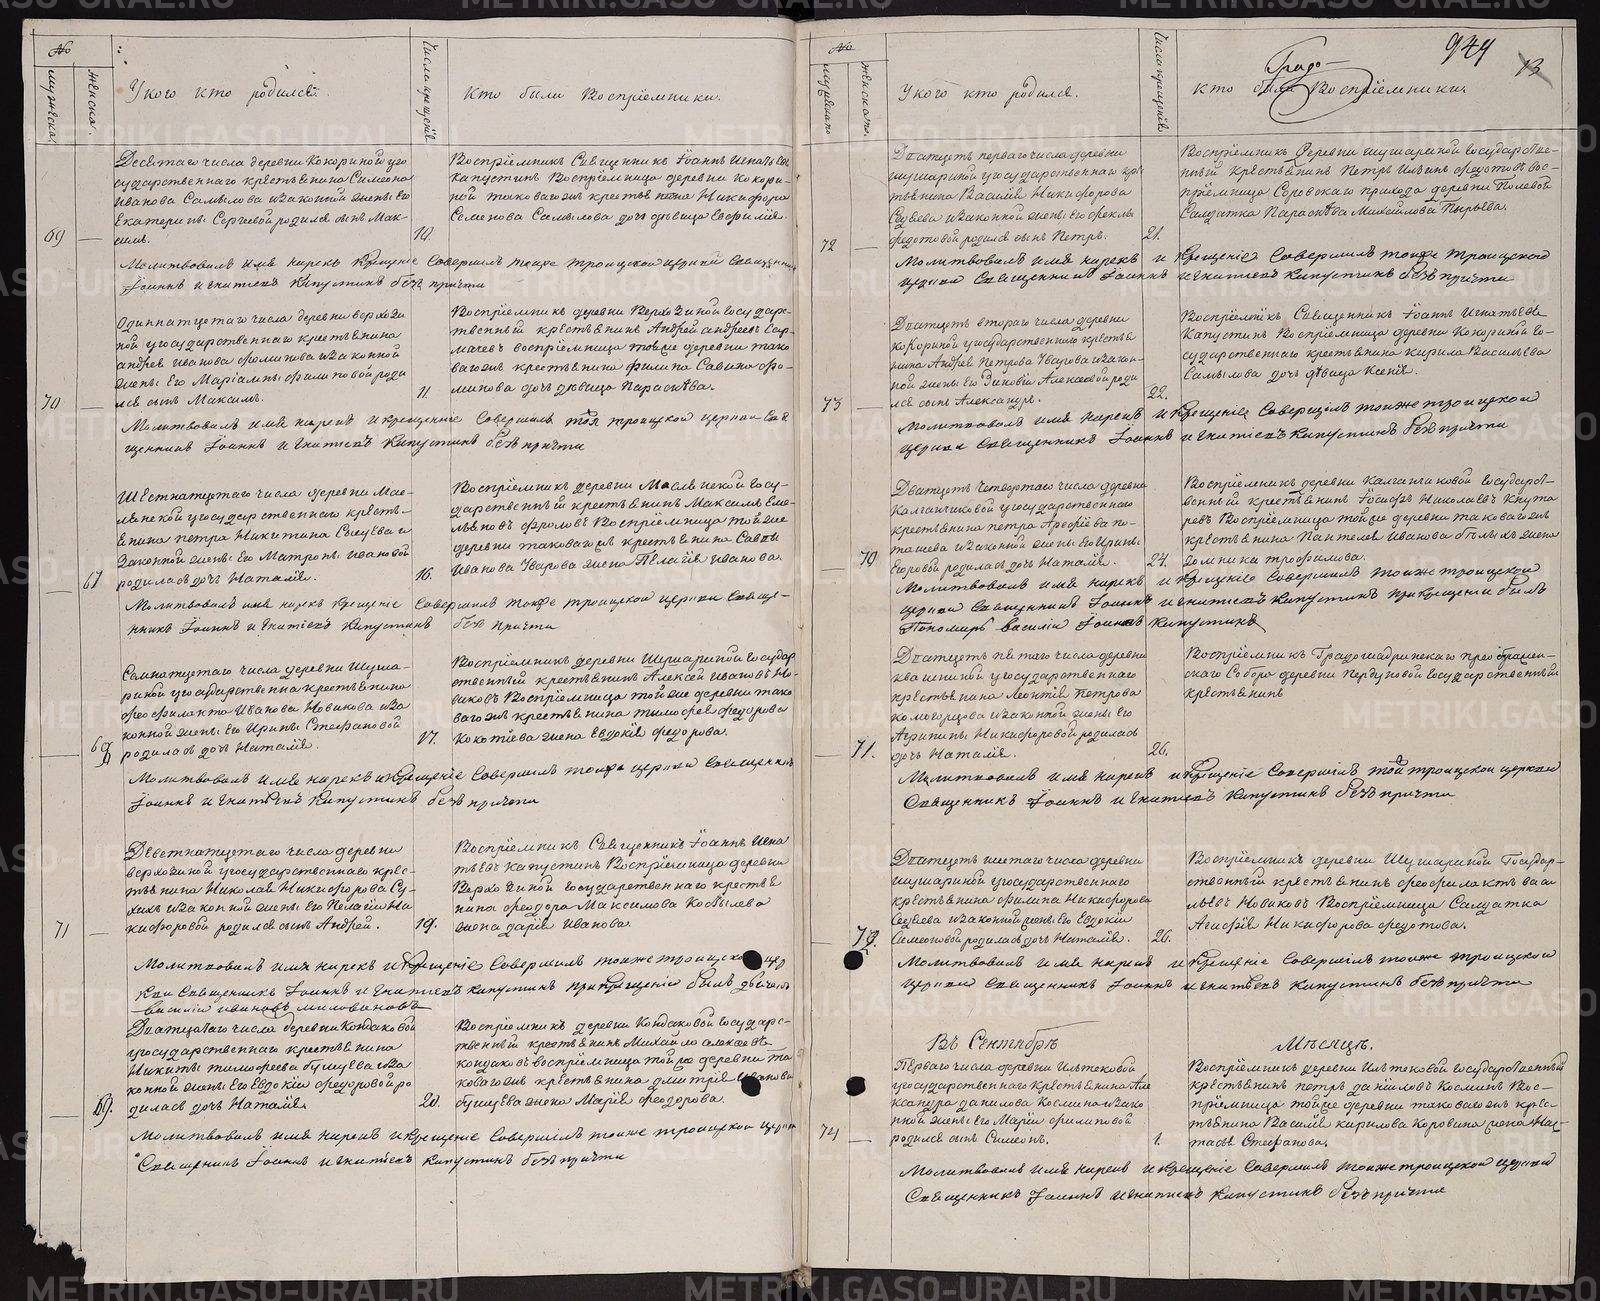 №
мужеска.
женска.
У кого кто родился.
Числа крещенія
Кто были Воспріемники.
Десятаго числа деревни Кокориной го
сударственнаго крестьянина Симеона
Иванова Самылова и законной жены его
Екатерины Сергеевой родился сынъ Мак-
симъ.
69
10.
Воспріемникъ Священникъ Іоаннъ Игнатьевъ
Капустинъ Воспріемница деревни Кокори-
ной таковагожъ крестьянина Никифора
Семенова Самылова дочь дѣвица Евфимія.
Молитвовалъ имя нарекъ Крещеніе Совершилъ тояже троицкой церкви Священникъ
Іоаннъ Игнатіевъ Капустинъ безъ причта
Одиннатцетаго числа деревни верхози
ной государственнаго крестьянина
андрея Иванова филипова и законной
жены Его Маріамны филиповой роди
лся сынъ Максимъ.
70
11.
Воспріемникъ деревни Верхозиной государс-
твенный крестьянинъ Андрей андреевъ
воспріемница тойже деревни тако
вагожъ крестьянина филипа Савина фи-
липова дочь дѣвица Параскѣва.
Молитвовалъ имя нарекъ и крещеніе Совершилъ тоя троицкой церкви Свя
щенникъ Іоаннъ Игнатіевъ Капустинъ безъ причта
Шестнатцетаго числа деревни Мас-
лянской государственнаго кресть-
янина петра Никитина и
Законной жены Его Матроны ивановой
родилась дочь Наталія.
67
16.
Воспріемникъ деревни Маслянской госу-
дарственный крестьянинъ Максимъ Еме-
льяновъ фроловъ Воспріемница тойже
деревни таковагожъ крестьянина Савы
Иванова Уварова жена Пелагія иванова
Молитвовалъ имя нарекъ Крещеніе Совершилъ тояже троицкой церкви Свяще-
нникъ Іоаннъ Игнатіевъ Капустинъ безъ причта
Семнатцетаго числа деревни Шума-
риной государственна крестьянина
феофилакта Иванова Новикова и за
конной жены Его Ирины Стефановой
родилась дочь Наталія.
17.
Воспріемникъ деревни Шумариной государ
ственный крестьянинъ Алексей ивановъ Но-
виковъ Воспріемница тойже деревни тако
вагожъ крестьянина тимофея федорова
жена Евдокія федорова.
Молитвовалъ имя нарекъ и крещеніе Совершилъ тояже церкви Священникъ
Іоаннъ Игнатіевъ Капустинъ безъ причта
Деветнатцетаго числа деревни
верхозиной государственнаго крес-
тьянина Николая Никифорова Су-
хихъ и законной жены Его Пелагіи Ни
кифоровой родился сынъ Андрей.
71
19.
Воспріемникъ Священникъ Іоаннъ Игна
тьевъ Капустинъ Воспріемница деревни
Верхозиной государственнаго крестья
нина феодора Максимова Кобылева
жена дарія Иванова.
Молитвовалъ имя нарекъ и крещеніе Совершилъ тояже троицкой цер
кви Священникъ Іоаннъ Игнатіевъ Капустинъ при крещеніи былъ дьячекъ
василіи ивановъ миловановъ
Дватцатаго числа деревни Кондаковой
государственнаго крестьянина
Никиты тимофеева бунцева и за
конной жены Его Евдокіи федоровой ро
дилась дочь Наталія.
69.
20.
Воспріемникъ деревни Кондаковой госудърс-
твенный крестьянинъ Михайло алексеевъ
кондаковъ воспріемница тойже деревни та
ковагожъ крестьянина дмитрія иванова
бунцева жена Марія феодорова.
Молитвовалъ имя нарекъ и крещеніе Совершилъ тояже троицкой церкви
Священникъ Іоаннъ Игнатіевъ Капустинъ безъ причта
944
13
Градо-
№
мужеска
женска
У кого кто родился.
Числа крещенія
кто были Воспріемники.
Дватцеть перваго числа деревни
шумариной государственнаго кре
стьянина Василія Никифорова
Седьева и законной жены Его феклы
федотовой родился сынъ Петръ.
72
21.
Воспріемникъ Деревни шумариной государстве-
нный крестьянинъ Петръ Ильинъ федотовъ вос-
пріемница Суровскаго прихода деревни Полевой
Салдатка Параскѣва Михайлова Пырьева.
Молитвовалъ имя нарекъ и Крещеніе Совершилъ тояже троицкой
церкви Священникъ Іоаннъ Игнатіевъ Капустинъ безъ причта
Дватцеть втораго числа деревни
кокориной государственнаго крестья
нина Андрея Петрова Уварова и закон-
ной жены Его Зиновіи Алексеевой роди
лся сынъ Александръ.
73
22.
Воспріемникъ Священникъ Іоаннъ Игнатьевъ
Капустинъ Воспріемница деревни Кокориной го-
сударственнаго крестьянина кирила Васильева
Самылова дочь дѣвица Ксенія.
Молитвовалъ имя нарекъ и Крещеніе Совершилъ тояже троицкой
церкви Священникъ Іоаннъ Игнатіевъ Капустинъ безъ причта
Дватцеть Четвертаго числа деревни
Калганчиковой государственнаго
крестьянина петра Арефіева по-
ташева и законной жены Его Ирины
Егоровой родилась дочь Наталія.
70
24.
Воспріемникъ деревни Калганчиковой государст-
венный крестьянинъ Іосифъ Николаевъ Кнута
ревъ Воспріемница тойже деревни таковагожъ
крестьянина Пантелея Иванова бѣлыхъ жена
домника трофимова.
Молитвовалъ имя нарекъ и Крещеніе Совершилъ тояже троицкой
церкви Священникъ Іоаннъ Игнатіевъ Капустинъ при крещеніи былъ
Пономарь василіи Іоанновъ Капустинъ
Дватцеть пятаго числа деревни
квашниной государственнаго
крестьянина Леонтія Петрова
коморцова и законной жены Его
Агрипины Никифоровой родилась
дочь Наталія.
71.
26.
Воспріемникъ Градошадринскаго преображен-
скаго Собора деревни Перуновой государственный
крестьянинъ
Молитвовалъ имя нарекъ и Крещеніе Совершилъ той троицкой церкви
Священникъ Іоаннъ Игнатіевъ Капустинъ безъ причта
Дватцеть шестаго числа деревни
шумариной государственнаго
крестьянина филипа Никифорова
Седьева и законной жены Его Евдокіи
Симеоновой родилась дочь Наталія.
26.
Воспріемникъ деревни Шумариной Государ-
ственный крестьянинъ феофилактъ васи
льевъ Новиковъ Воспріемница Салдатка
Агафія Никифорова федотова.
Молитвовалъ имя нарекъ и Крещеніе Совершилъ тояже троицкой
церкви Священникъ Іоаннъ Игнатіевъ Капустинъ безъ причта
Въ Сентябрѣ Мѣсяцѣ.
Перваго числа деревни Ильтековой
государственнаго Крестьянина Але
ксандра данилова Космина и зако
нной жены Его Маріи филиповой
родился сынъ Симеонъ.
74
1.
Воспріемникъ деревни Ильтековой государственный
крестьянинъ петръ даниловъ Косминъ Вос-
пріемница тойже деревни таковагожъ крес-
тьянина Василія кирилова Коровина жена Нас-
тасья Стефанова.
Молитвовалъ имя нарекъ и крещеніе Совершилъ тояже троицкой церкви
Священникъ Іоаннъ Игнатіевъ Капустинъ безъ причта
METRIKI.GASO-URAL.RU